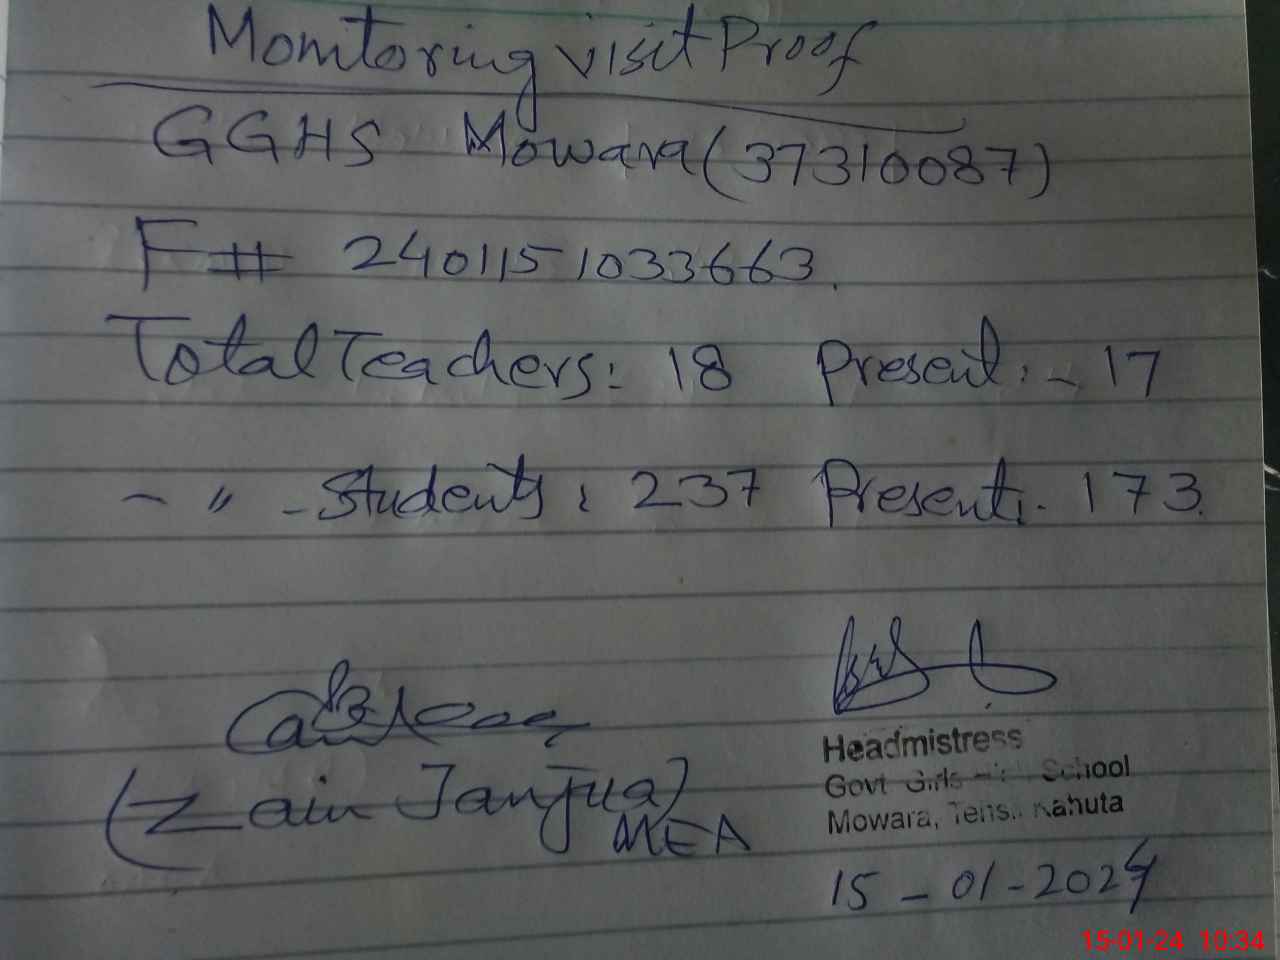 Monitoring visit Proof
GGHS Mowara (37310087)
F# 2401151033663.
Total Teachers: 18 Present:- 17
- " - Students: 237 Present:- 173.
(Zain Janjua)
MEA
Headmistress
Govt Girls High School
Mowara, Tehs.. Kahuta
15-01-2024
15-01-24 10:34